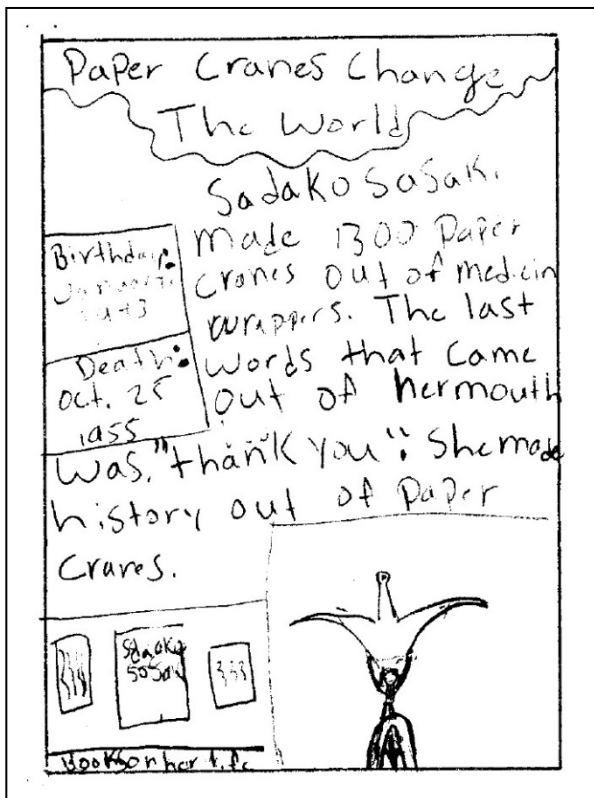 Paper Cranes Change
The World
Sadako Sasaki
made 1300 Paper
cranes out of medicin
wrappers. The last
words that came
out of her mouth
was, "thank you". She made
history out of paper
Cranes.
Birthday:
Death:
Oct. 25
1955
Sadako
Sosak
Books on her life